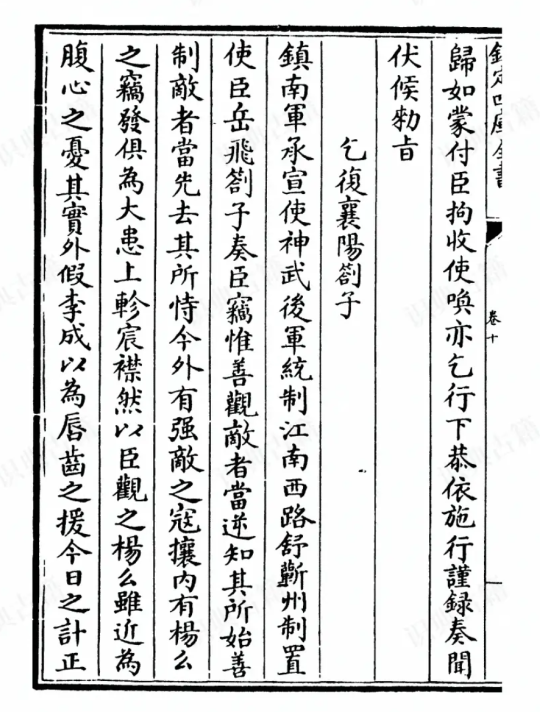 欽定四庫全書
卷十
歸如蒙付臣拘收使喚亦乞行下恭依施行謹録奏聞
伏候勅㫖
乞復襄陽劄子
鎮南軍承宣使神武後軍統制江南西路舒蘄州制置
使臣岳飛劄子奏臣竊惟善觀敵者當逆知其所始善
制敵者當先去其所恃今外有强敵之寇攘内有楊么
之竊發俱為大患上軫宸襟然以臣觀之楊么雖近為
腹心之憂其實外假李成以為唇齒之援今日之計正